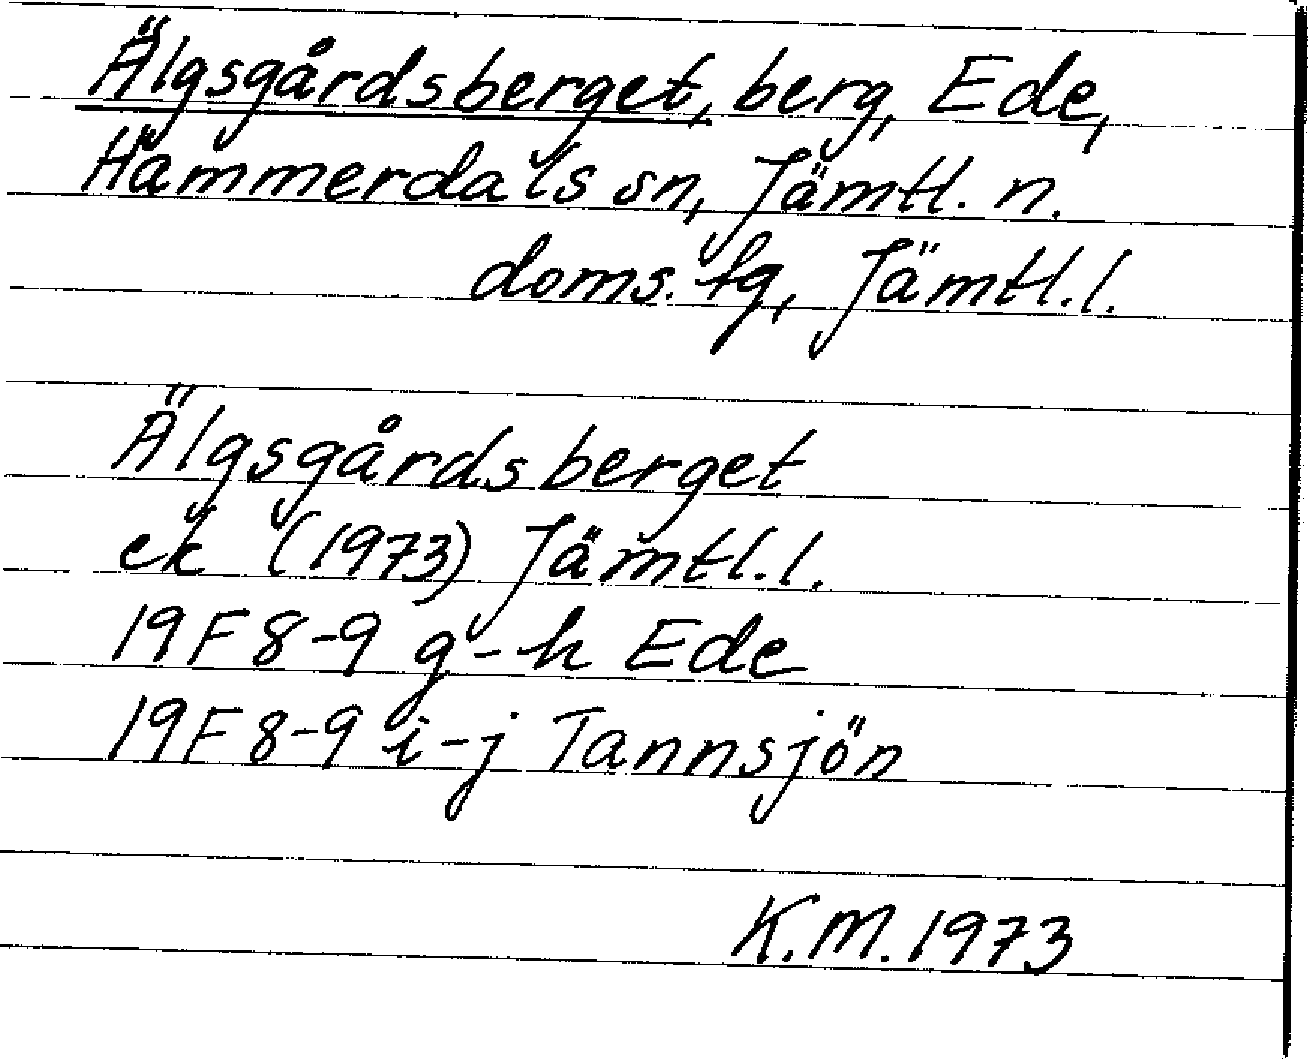 Älgsgårdsberget, berg, Ede,
Hammerdals sn, Jämtl. n.
doms. fg, Jämtl. l.
Älgsgårdsberget
ek (1973) Jämtl. l.
19F 8-9 g-h Ede
19F 8-9 i-j Tannsjön
K.M. 1973